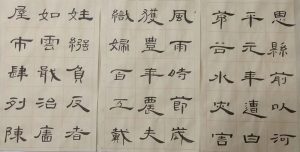 姓繈負反者
如雲戢治廧
屋市肆列陳
風雨時節歲
獲豐年農夫
織婦百工戴
恩縣前以河
平元年遭白
茅谷水灾害